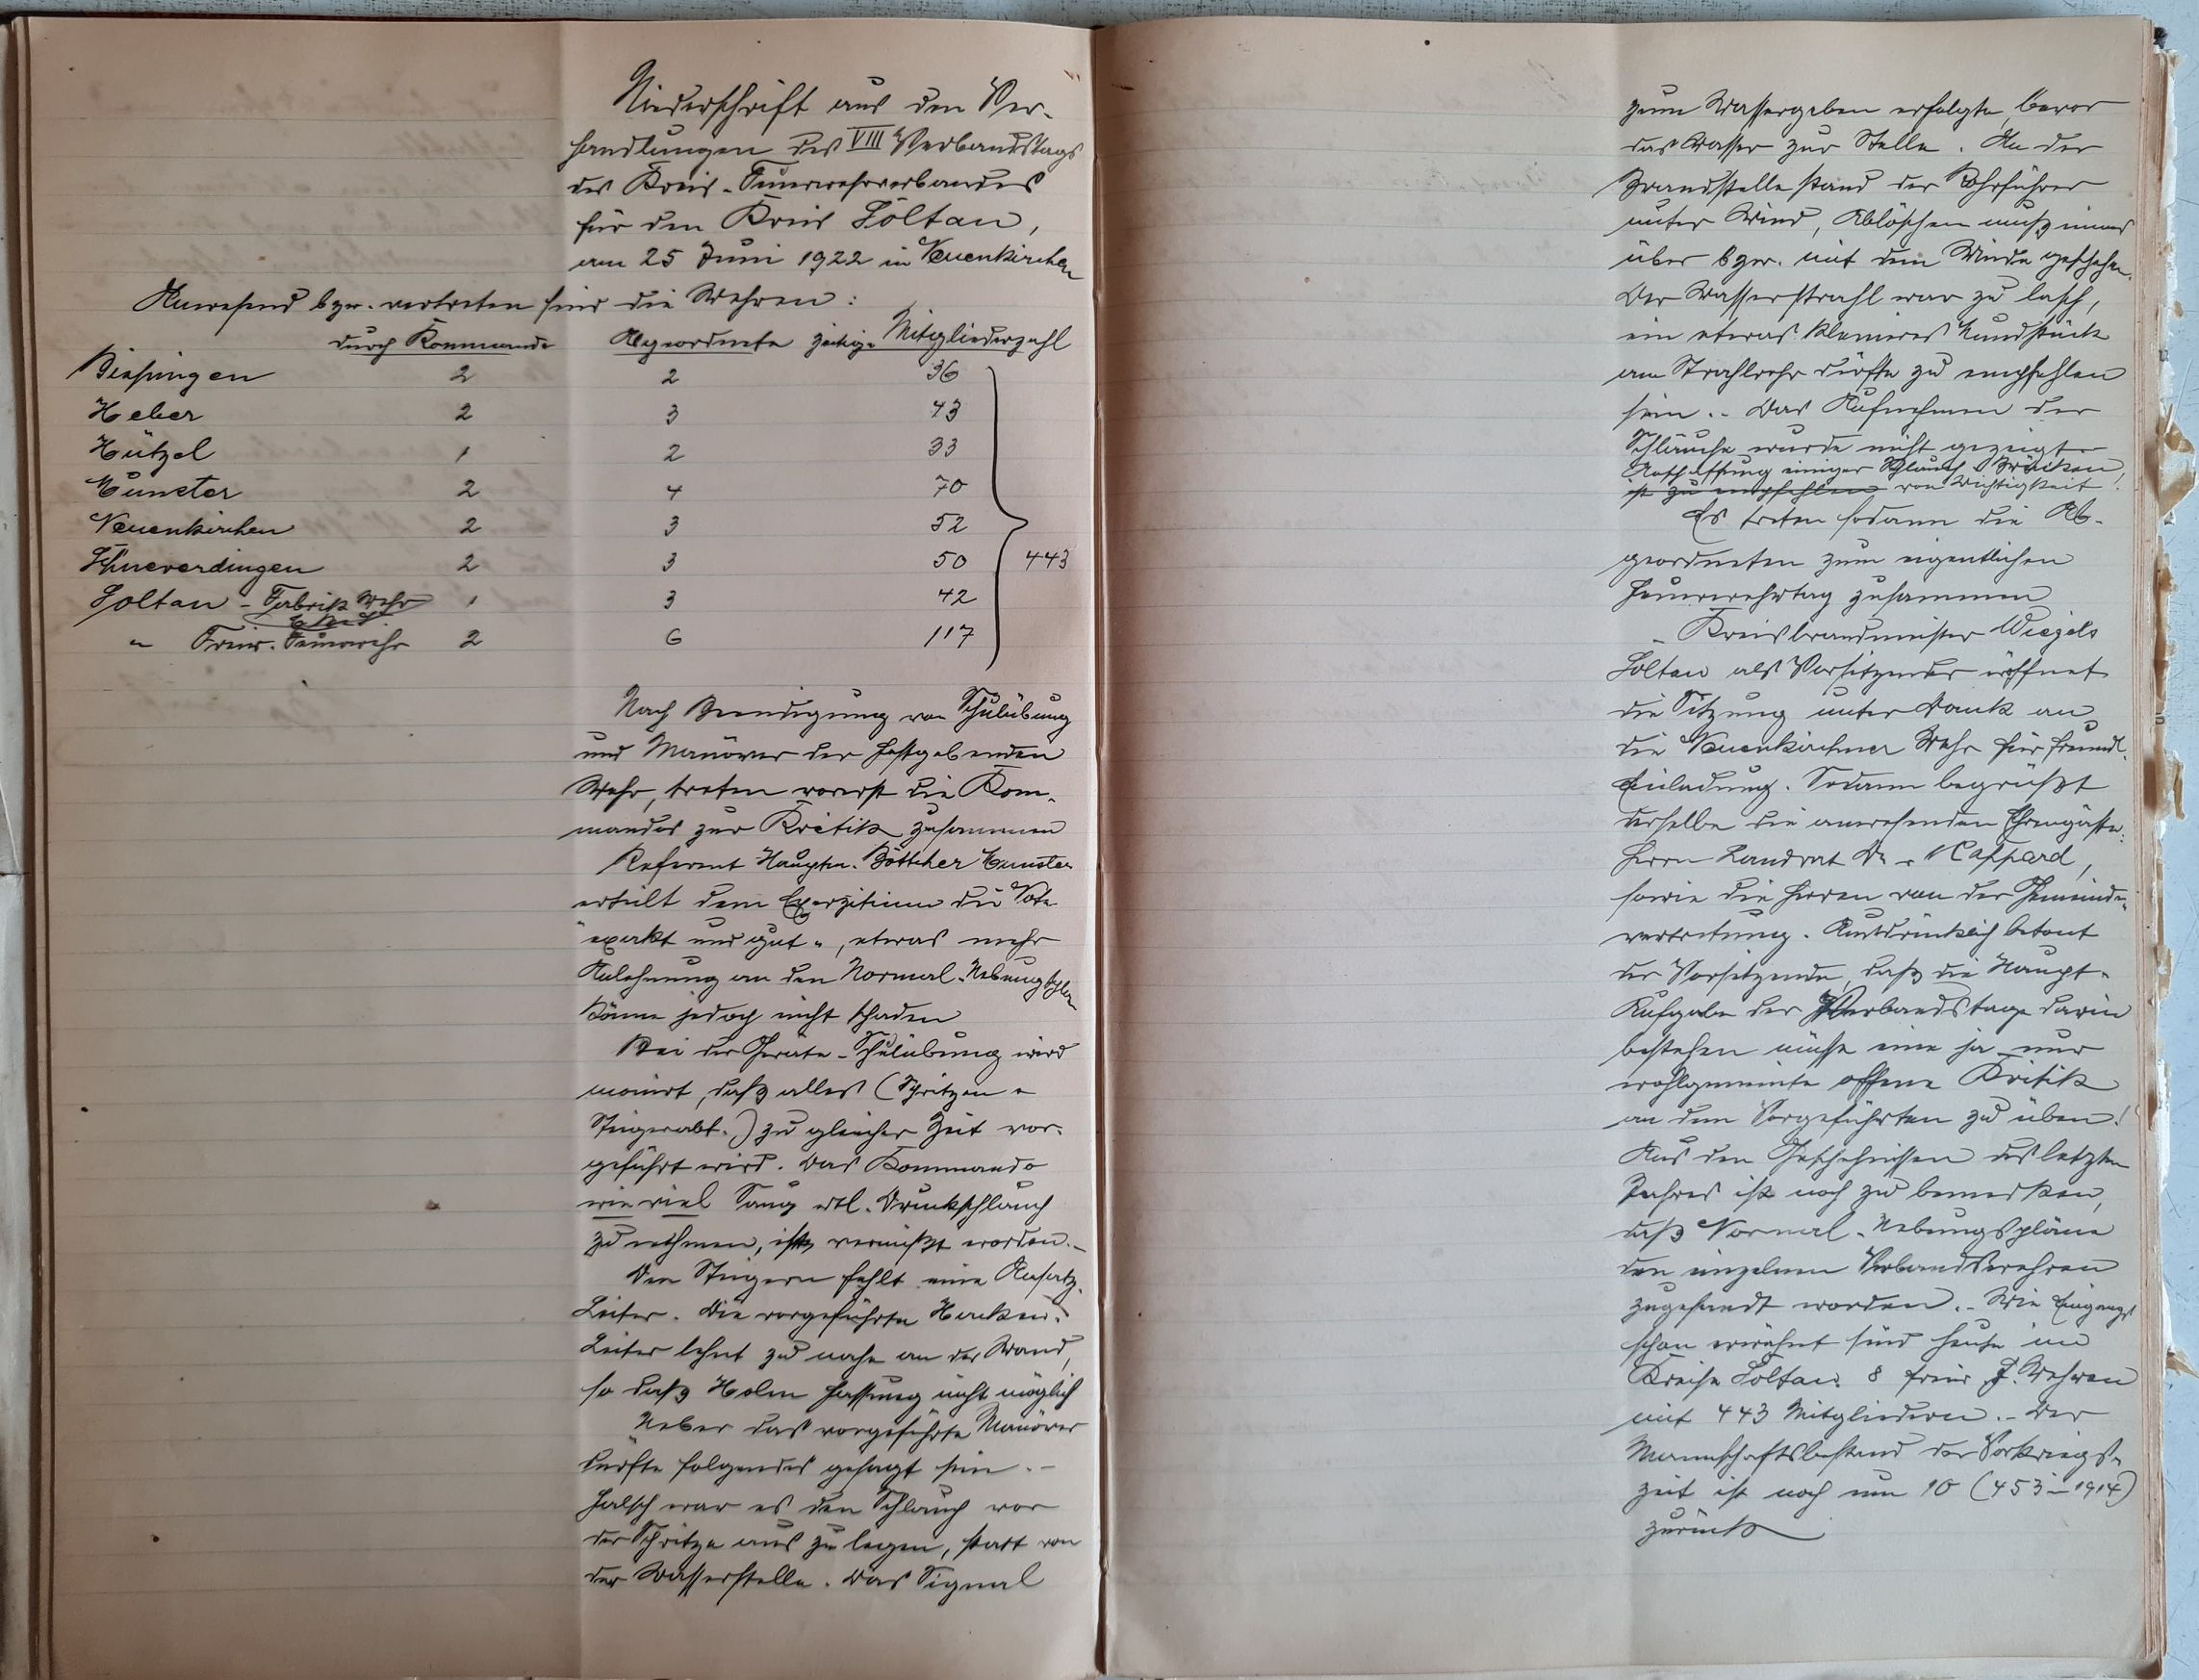 Niederschrift aus den Ver-
handlungen des VIII Verbandstags
des Kreis-Feuerwehrverbandes
für den Kreis Soltau,
am 25 Juni 1922 in Neuenkirchen
Anwesend bzw. vertreten sind die Wehren:
durch Kommando Abgeordnete zeitige Mitgliederzahl
Bispingen 2 2 36
Heber 2 3 43
Hützel 1 2 33
Munster 2 4 70
Neuenkirchen 2 3 52
Schneverdingen 2 3 50 443
Soltau - Fabrik Wehr 1 3 42
" Freiw. Feuerwehr 2 6 117
Nach Beendigung von Schulübung
und Manöver der festgebenden
Wehr, treten vorerst die Kom-
mandos zur Kritik zusammen
Referent Hauptm. Böttcher Munster
erteilt dem Exerzitium die Note
"exakt und gut", etwas mehr
Anlehnung an den Normal-Uebungsplan
könne jedoch nicht schaden
Bei der Geräte-Schulübung wird
moniert, daß alles (Spritzen u
Steigerabt.) zu gleicher Zeit vor-
geführt wird. Das Kommando
wie viel Saug etl. Druckschlauch
zu nehmen, ist vermißt worden.-
Den Steigern fehlt eine Ansatz-
Leiter. Die vorgeführte Hacken-
Leiter lehnt zu nahe an der Wand,
so daß Holm fassung nicht möglich
Ueber das vorgeführte Manöver
dürfte folgendes gesagt sein.-
Falsch war es den Schlauch vor
der Spritze aus zu legen, statt von
der Wasserstelle. Das Signal
zum Wassergeben erfolgte, bevor
das Wasser zur Stelle. An der
Brandstelle stand der Rohrführer
unter Wind, Ablöschen muß immer
über bzw. mit dem Winde geschehen.
Der Wasserstrahl war zu lasch,
ein etwas kleineres Mundstück
am Strahlrohr dürfte zu empfehlen
sein.- Das Aufnehmen der
Schläuche wurde nicht gezeigt
Anschaffung einiger Schlauch-Brücken,
ist zu empfehlen von Wichtigkeit.
Es treten sodann die Ab-
geordneten zum eigentlichen
Feuerwehrtag zusammen
Kreisbrandmeister Wiegels
Soltau als Vorsitzender eröffnet
die Sitzung unter Dank an
die Neuenkirchner Wehr für freundl.
Einladung. Sodann begrüßt
derselbe die anwesenden Ehrengäste:
Herrn Landrat Dr. v Rappard,
sowie die Herren von der Gemeinde-
vertretung. Ausdrücklich betont
der Vorsitzende, daß die Haupt-
Aufgabe der Verbandstage darin
bestehen müsse eine ja nur
wohlgemeinte offene Kritik
an dem Vorgeführten zu üben!
Aus den Geschehnissen des letzten
Jahres ist noch zu bemerken,
daß Normal-Uebungspläne
den einzelnen Verbandswehren
zugesandt worden.- Wie Eingangs
schon erwähnt sind heute im
Kreise Soltau 8 freiw. F. Wehren
mit 443 Mitgliedern.- Der
Mannschaftsbestand der Vorkriegs-
zeit ist noch um 10 (453 - 1914)
zurück